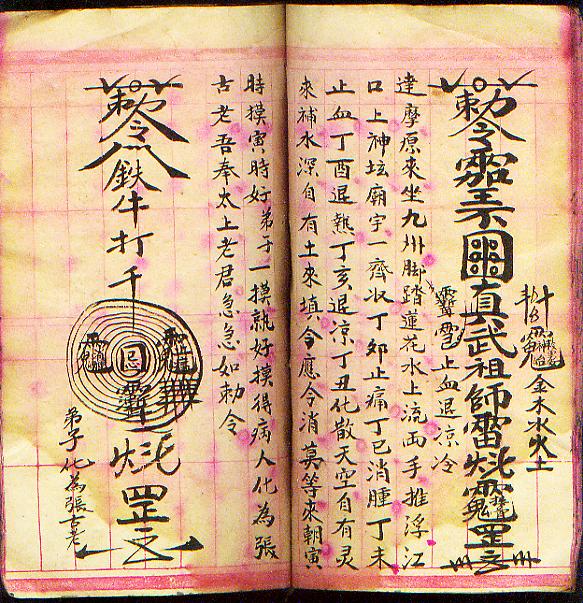 金木水火土
勅令 真武祖師雷 罡
止血退凉冷
達摩原來坐九州脚踏蓮花水上流両手推浮江
口上神坛廟宇一齊收丁夘止痛丁巳消腫丁未
止血丁酉退熱丁亥退凉丁丑化散天空自有灵
來補水深自有土來填令應令消莫等來朝寅
時摸寅時好弟子一摸就好摸得病人化為張
古老吾奉太上老君急急如勅令
勅令 鉄牛打千 忌 罡
弟子化為張古老